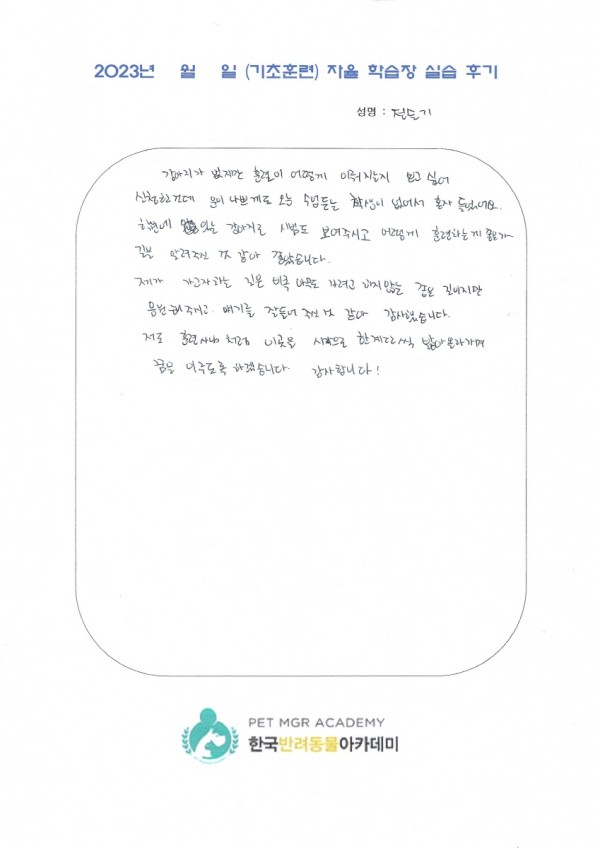 2023년 월 일 (기초훈련) 자율 학습장 실습 후기
성명 :
강아지가 없지만 훈련이 어떻게 이뤄지는지 보고 싶어
신청하건데 운이 나쁘게도 오늘 수업듣는 학생이 없어서 혼자 들었네요.
한번에 있는 강아지로 시범도 보여주시고 어떻게 훈련하는게 좋은가
길을 알려주신 것 같아 좋았습니다.
제가 가고자하는 길은 비록 아무도 가려고 하지않는 좁은 길이지만
응원해주시고 얘기를 잘들어 주신 것 같아 감사했습니다.
저도 훈련사님 처럼 이곳을 시작으로 한계단씩 밟아 올라가며
꿈을 이루도록 하겠습니다. 감사합니다!
PET MGR ACADEMY
한국반려동물아카데미